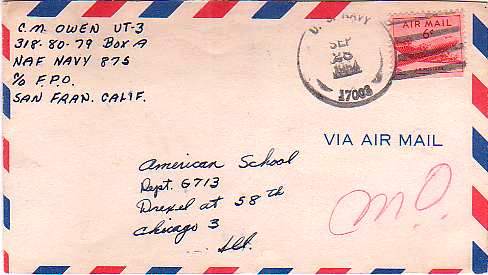 C.M. OWEN UT-3
318-80-79 BOX A
NAF NAVY 875
℅ F.P.O.
SAN FRAN. CALIF.
U.S. NAVY
SEP
17003
AIR MAIL
6¢
VIA AIR MAIL
American School
Dept. G713
Drexel at 58th
Chicago 3
Ill.
M.O.